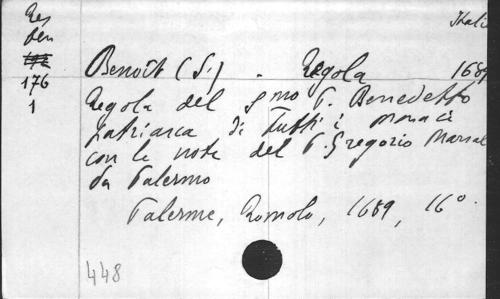 Res
Den
176
1
Itali
Benoît (St) - Regola 1689
Regola del Smo P. Benedetto
patriarca di Tutti i monaci
con le note del P. Gregorio Marsal
da Palermo
Palerme, Romolo, 1689, 16°.
448